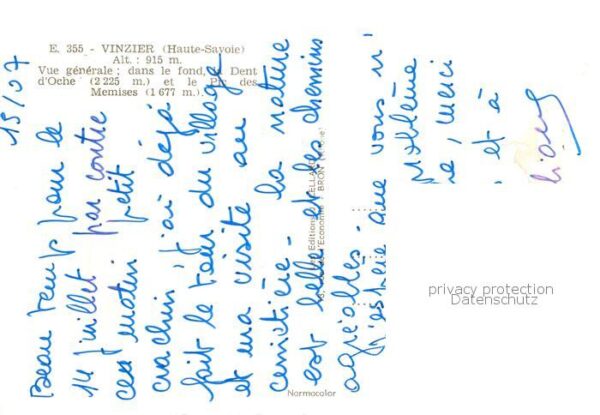 E. 355 - VINZIER (Haute-Savoie)
Alt. : 915 m.
Vue générale ; dans le fond, la Dent
d'Oche (2 225 m.) et le Pic des
Memises (1 677 m.).
15/07
Beau temps pour le
14 Juillet par contre
ce matin petit
crachin, j'ai déjà
fait le tour du village
et ma visite au
cimetière - la nature
est belle et les chemins
agréables.
J'espère que vous n'
problème
merci
et à
Editions
BRON
Normacolor
privacy protection
Datenschutz